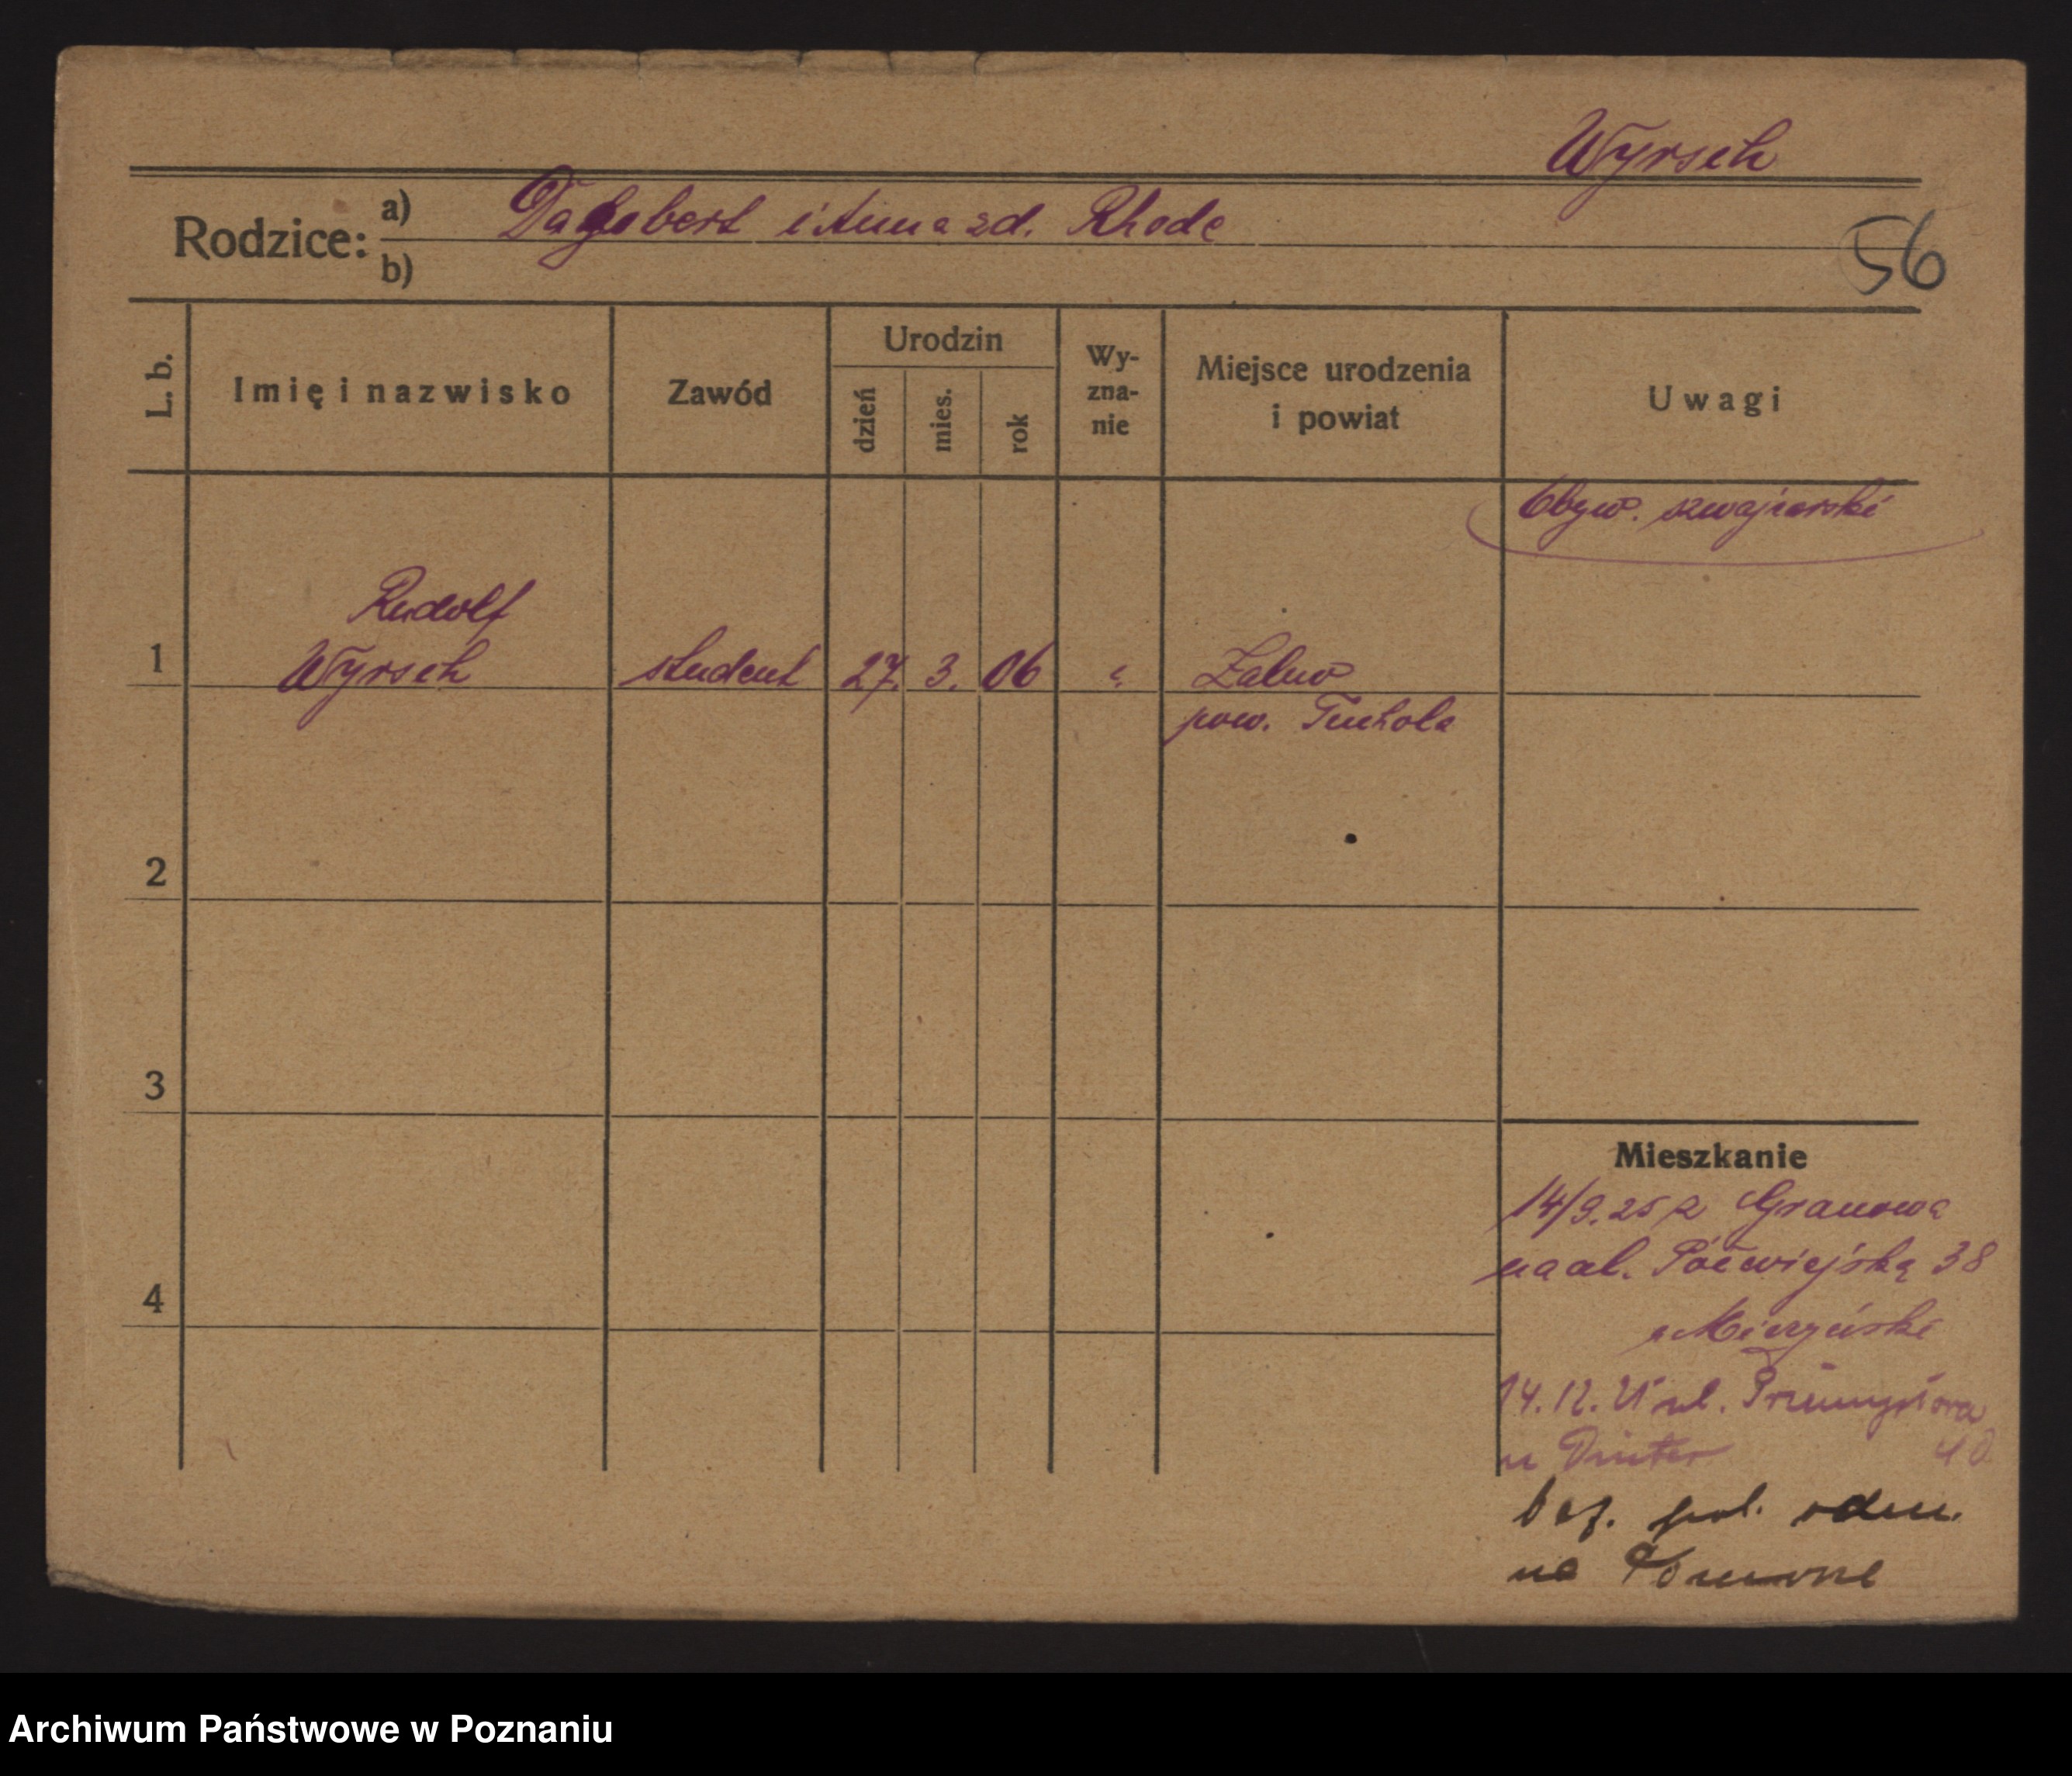 Wyrsch
Rodzice: a) Dagobert i Anna zd. Rhode
b)
56
L. b.
Imię i nazwisko
Zawód
Urodzin
dzień
mies.
rok
Wy-
zna-
nie
Miejsce urodzenia
i powiat
Uwagi
Obyw. szwajcarski
Rudolf
1 Wyrsch student 27. 3. 06 e. Zalno
pow. Tuchola
2
3
4
Mieszkanie
14/9. 25 z Granowa
na ul. Półwiejską 38
Mierzyński
14.12. 25 ul. Przemysłowa
u Dinter 40
bez. pol. odm.
na
Archiwum Państwowe w Poznaniu